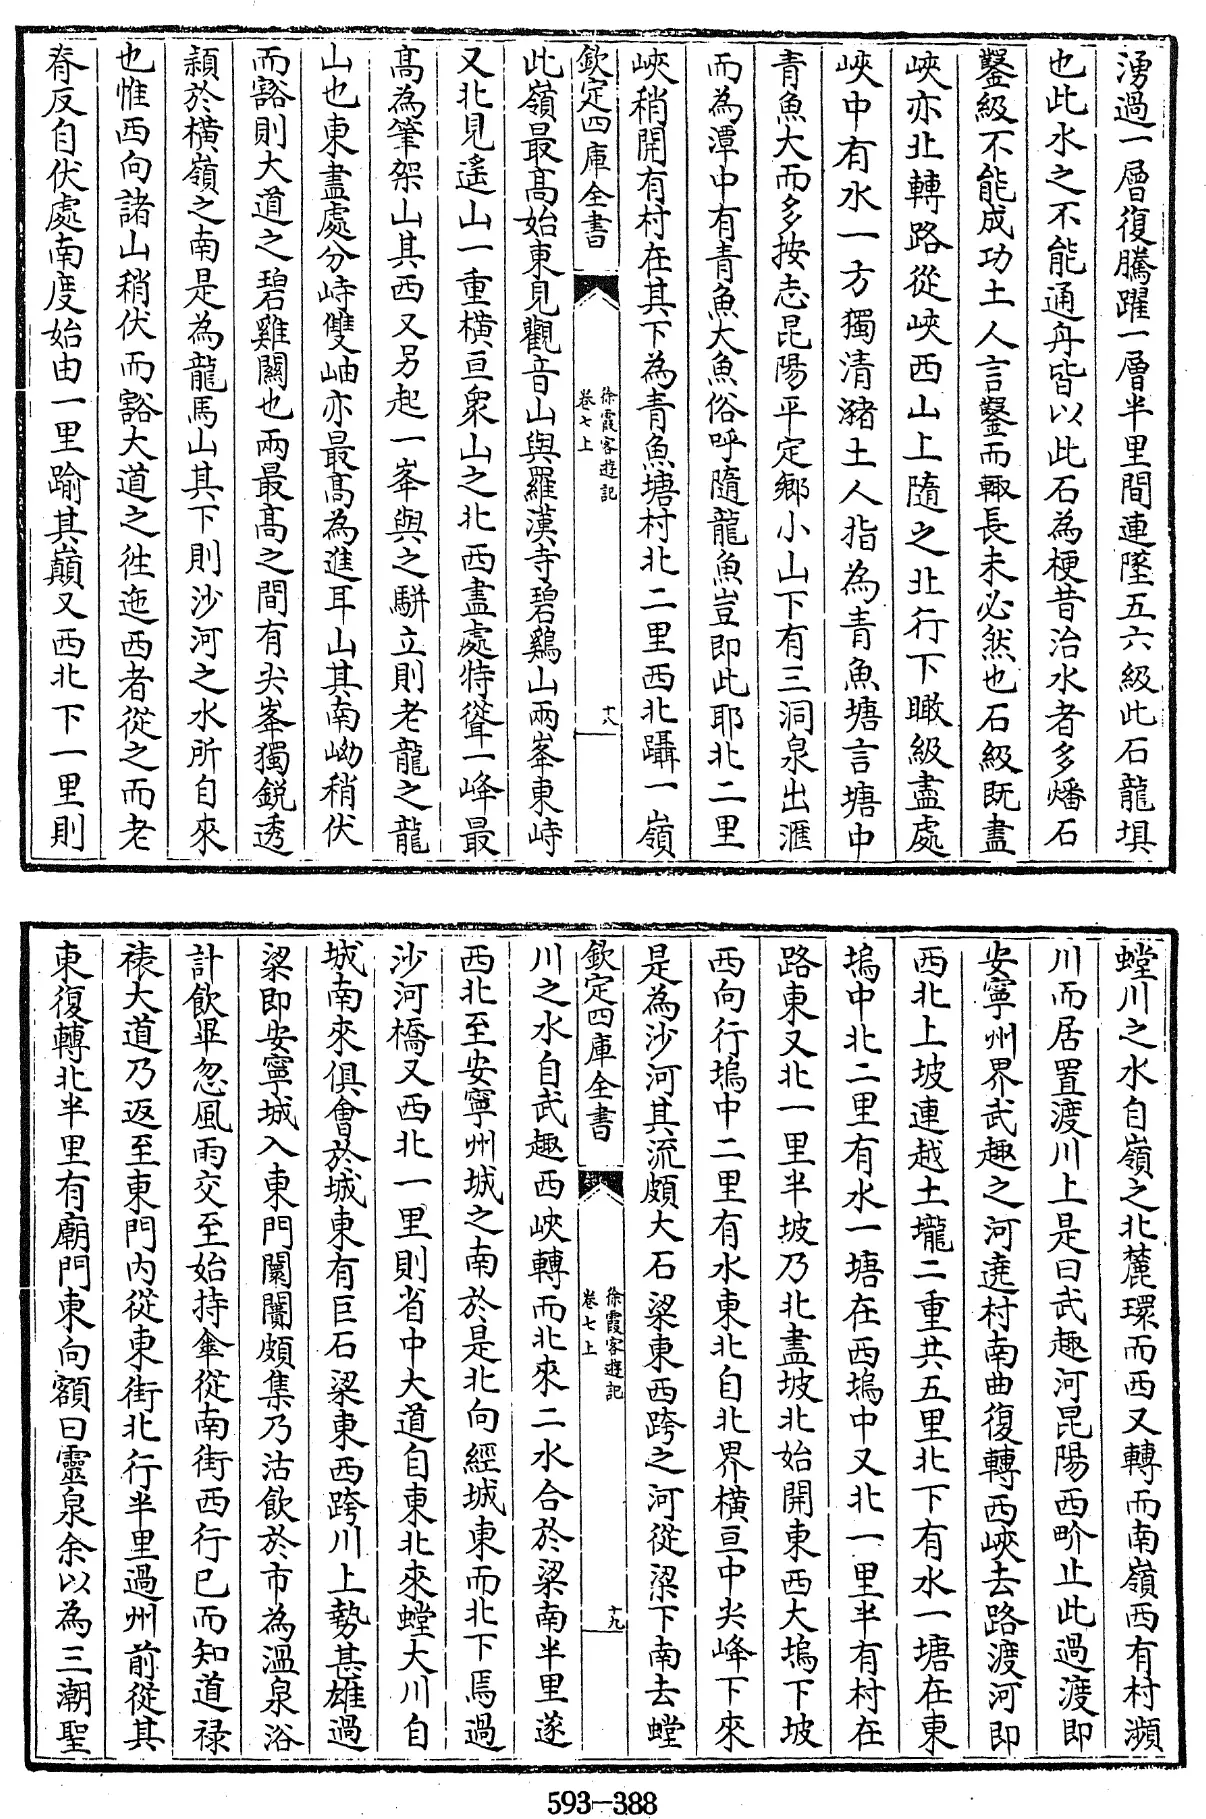 湧過一層復騰躍一層半里間連墜五六級此石龍垻
也此水之不能通舟皆以此石為梗昔治水者多燔石
鑿級不能成功土人言鑿而輒長未必然也石級既盡
峽亦北轉路從峽西山上隨之北行下瞰級盡處
峽中有水一方獨清瀦土人指為青魚塘言塘中
青魚大而多按志昆陽平定鄉小山下有三洞泉出滙
而為潭中有青魚大魚俗呼隨龍魚豈即此耶北二里
峽稍開有村在其下為青魚塘村北二里西北躡一嶺
欽定四庫全書
徐霞客遊記
卷七上
十八
此嶺最高始東見觀音山與羅漢寺碧鷄山兩峯東峙
又北見遙山一重橫亘衆山之北西盡處特聳一峰最
高為筆架山其西又另起一峯與之駢立則老龍之龍
山也東盡處分峙雙岫亦最高為進耳山其南坳稍伏
而豁則大道之碧雞關也兩最高之間有尖峯獨鋭透
頴於橫嶺之南是為龍馬山其下則沙河之水所自來
也惟西向諸山稍伏而豁大道之徃迤西者從之而老
脊反自伏處南度始由一里踰其巔又西北下一里則
螳川之水自嶺之北麓環而西又轉而南嶺西有村瀕
川而居置渡川上是曰武趣河昆陽西畍止此過渡即
安寧州界武趣之河遶村南曲復轉西峽去路渡河即
西北上坡連越土壠二重共五里北下有水一塘在東
塢中北二里有水一塘在西塢中又北一里半有村在
路東又北一里半坡乃北盡坡北始開東西大塢下坡
西向行塢中二里有水東北自北界橫亘中尖峰下來
是為沙河其流頗大石梁東西跨之河從梁下南去螳
欽定四庫全書
徐霞客遊記
卷七上
十九
川之水自武趣西峽轉而北來二水合於梁南半里遂
西北至安寧州城之南於是北向經城東而北下焉過
沙河橋又西北一里則省中大道自東北來螳大川自
城南來俱會於城東有巨石梁東西跨川上勢甚雄過
梁即安寧城入東門闤闠頗集乃沽飲於市為溫泉浴
計飲畢忽風雨交至始持傘從南街西行已而知道禄
裱大道乃返至東門內從東街北行半里過州前從其
東復轉北半里有廟門東向額曰靈泉余以為三潮聖
593-388